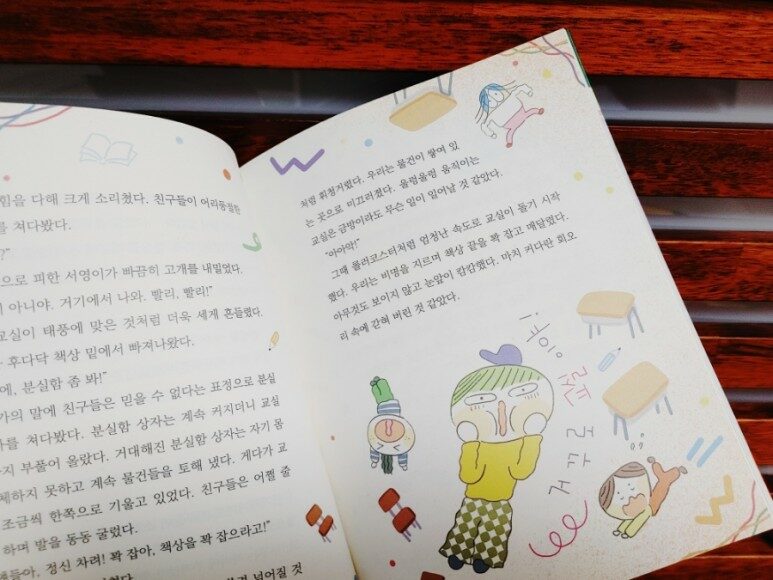 힘을 다해 크게 소리쳤다. 친구들이 어리둥절한
를 쳐다봤다.
?"
으로 피한 서영이가 빠끔히 고개를 내밀었다.
아니야. 거기에서 나와. 빨리, 빨리!"
교실이 태풍에 맞은 것처럼 더욱 세게 흔들렸다.
후다닥 책상 밑에서 빠져나왔다.
에, 분실함 좀 봐!"
가의 말에 친구들은 믿을 수 없다는 표정으로 분실
를 쳐다봤다. 분실함 상자는 계속 커지더니 교실
지 부풀어 올랐다. 거대해진 분실함 상자는 자기 몸
체하지 못하고 계속 물건들을 토해 냈다. 게다가 교
조금씩 한쪽으로 기울고 있었다. 친구들은 어쩔 줄
하며 발을 동동 굴렀다.
들아, 정신 차려! 꽉 잡아, 책상을 꽉 잡으라고!"
넘어질 것
처럼 휘청거렸다. 우리는 물건이 쌓여 있
는 곳으로 미끄러졌다. 울렁울렁 움직이는
교실은 금방이라도 무슨 일이 일어날 것 같았다.
"아아악!"
그때 롤러코스터처럼 엄청난 속도로 교실이 돌기 시작
했다. 우리는 비명을 지르며 책상 끝을 꽉 잡고 매달렸다.
아무것도 보이지 않고 눈앞이 캄캄했다. 마치 커다란 회오
리 속에 갇혀 버린 것 같았다.
거꾸로